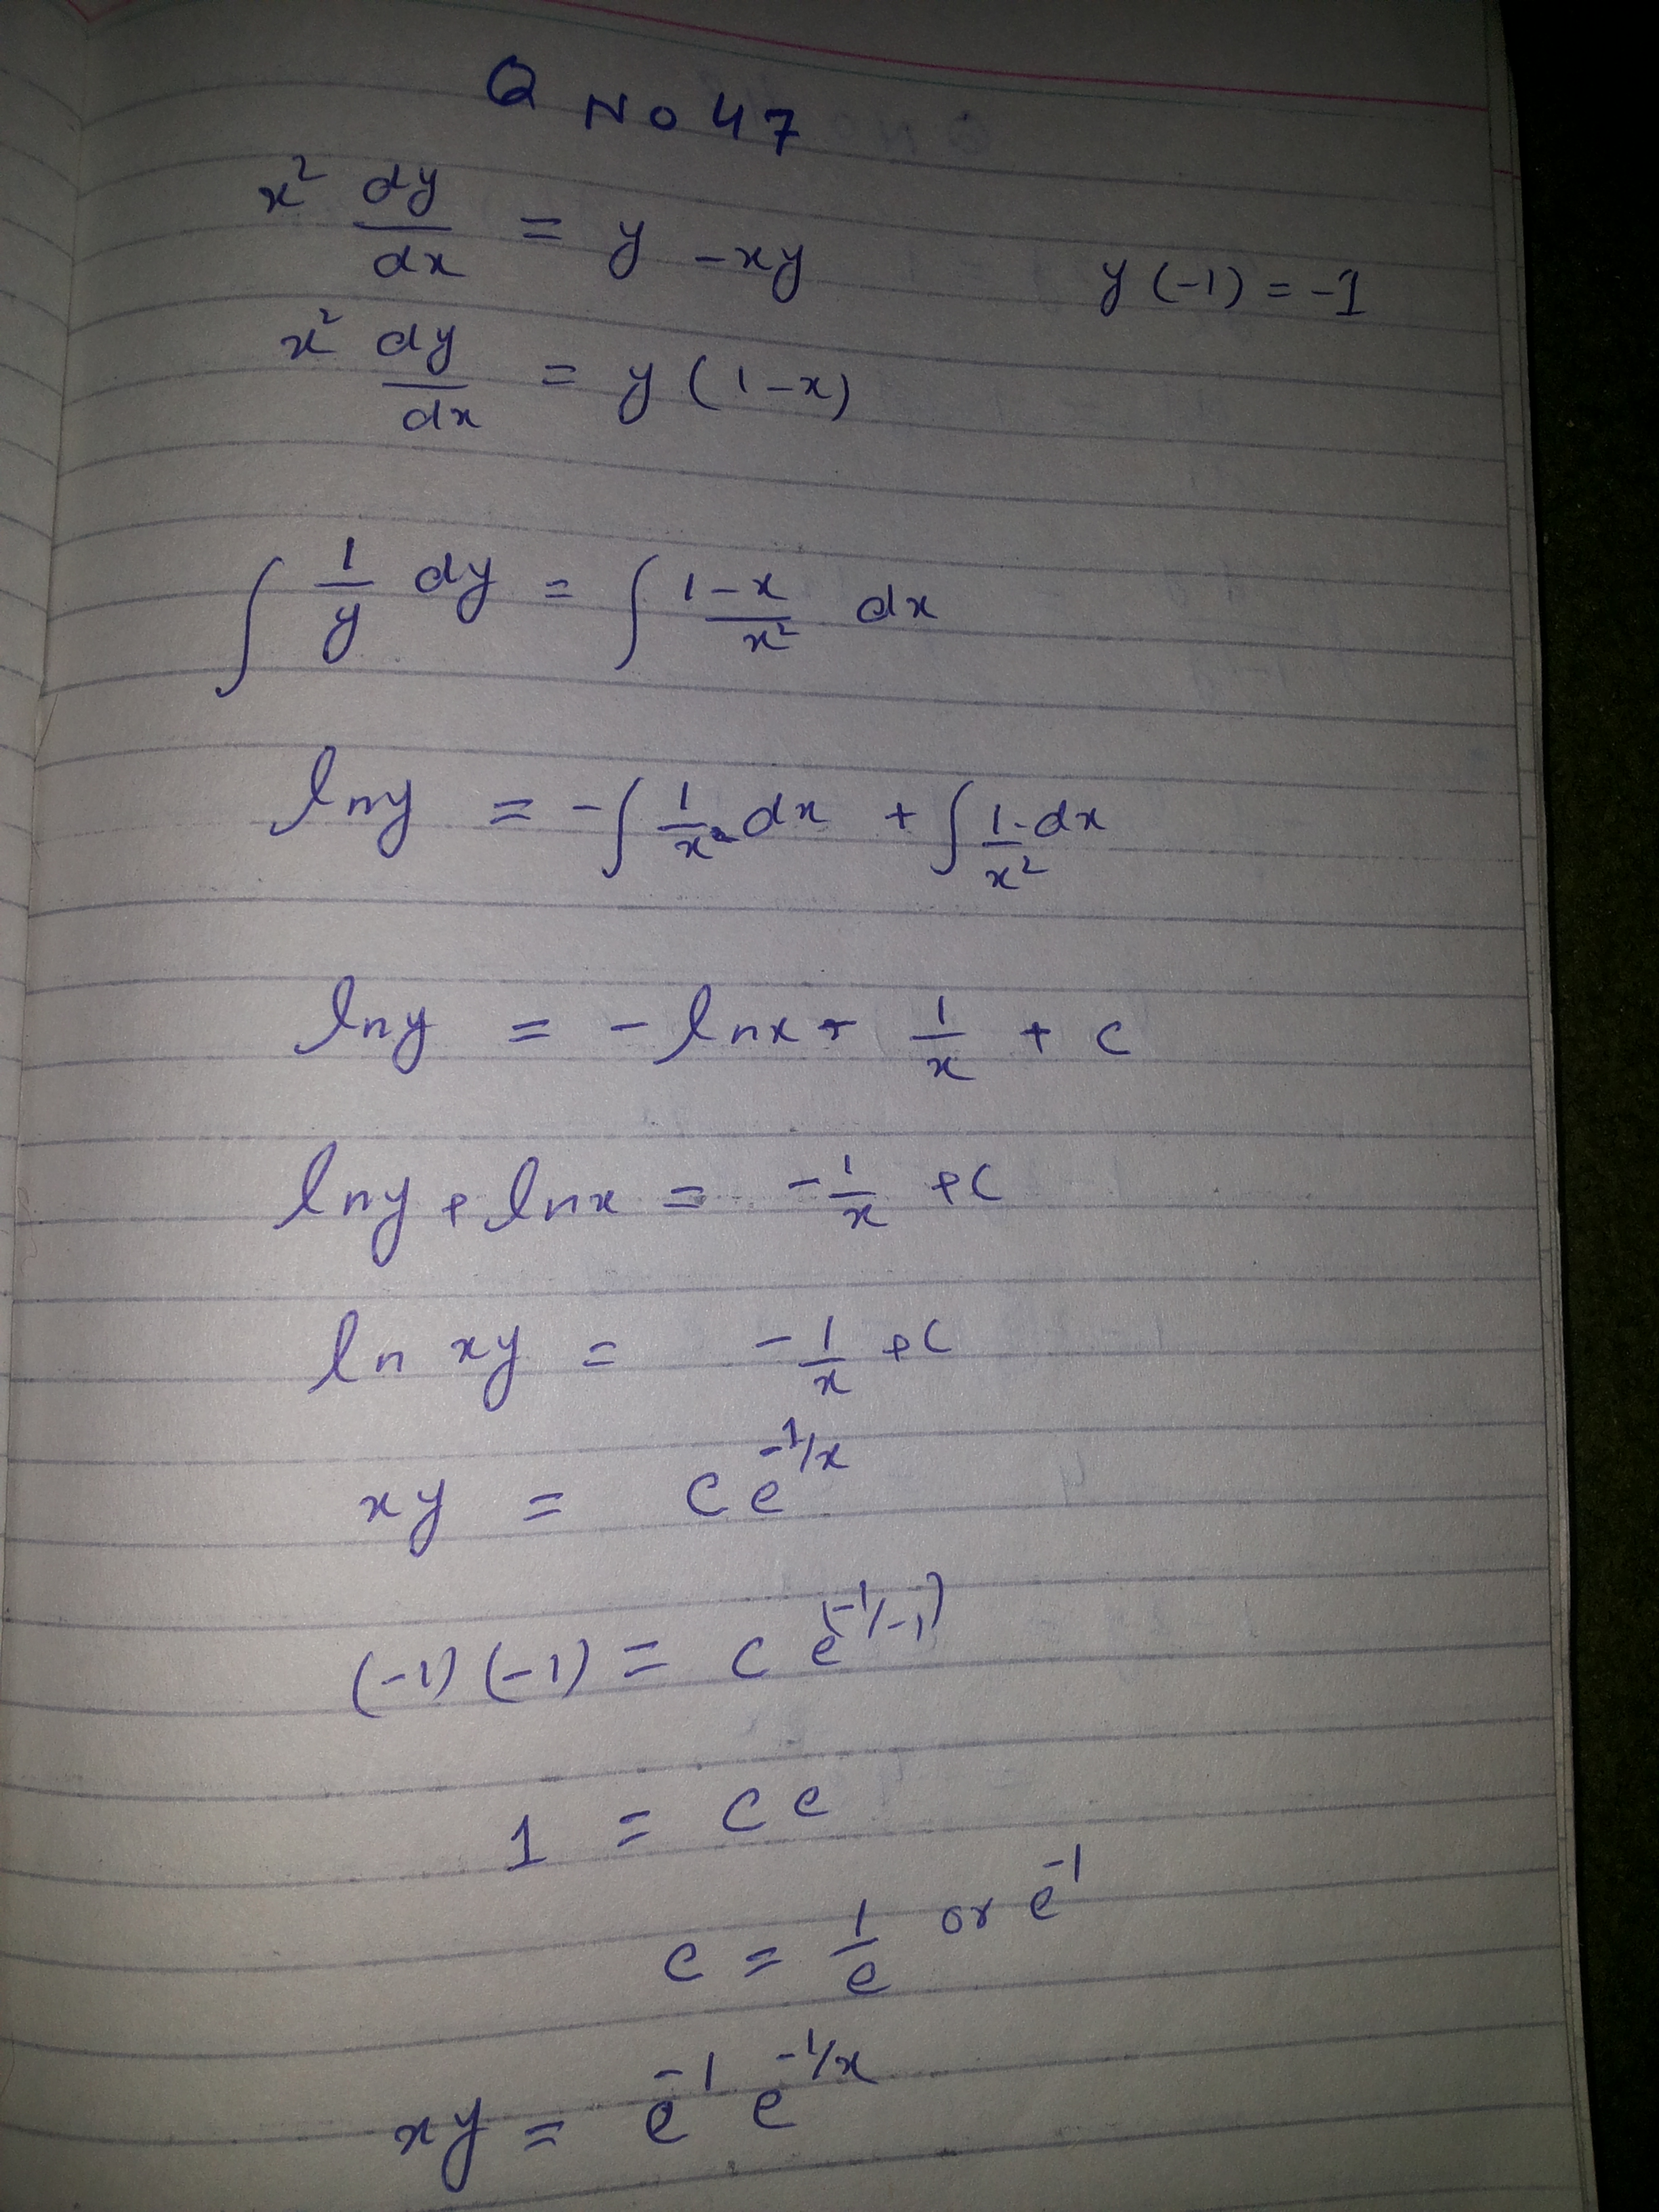 Q No 47
x² dy/dx = y - xy y(-1) = -1
x² dy/dx = y(1-x)
∫ 1/y dy = ∫ 1-x/x² dx
ln y = -∫ 1/x dx + ∫ 1/x² dx
ln y = - ln x - 1/x + c
ln y + ln x = - 1/x + c
ln xy = - 1/x + c
xy = c e^(-1/x)
(-1)(-1) = c e^(-1/-1)
1 = c e
c = 1/e or e⁻¹
xy = e⁻¹ e^(-1/x)